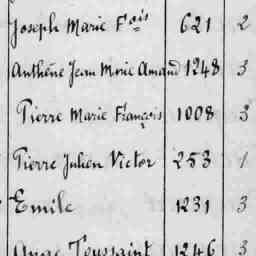 Joseph Marie Fois 621 2
Anthène Jean Marie Amand 1248 3
Pierre Marie François 1008 3
Pierre Julien Victor 253 1
Emile 1231 3
Ange Toussaint 1246 3